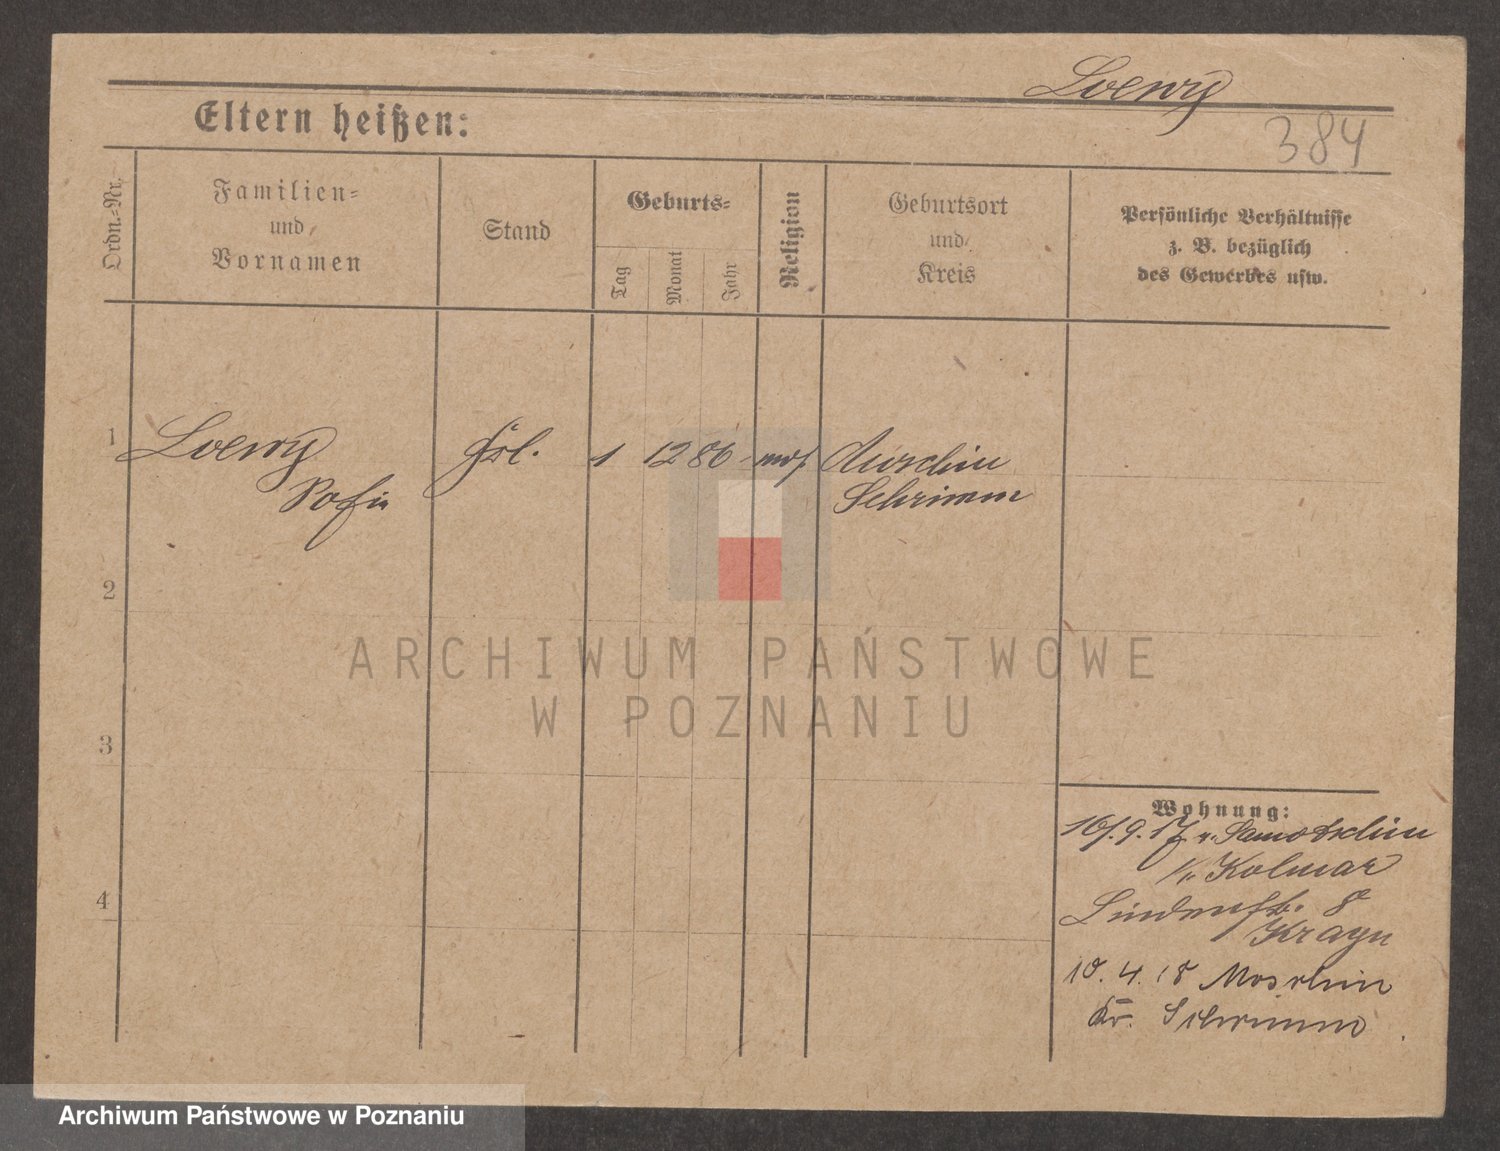 Loewy
384
Eltern heißen:
Ordn.-Nr.
Familien-
und
Vornamen
Stand
Geburts-
Tag
Monat
Jahr
Religion
Geburtsort
und
Kreis
Persönliche Verhältnisse
z. B. bezüglich
des Gewerbes usw.
1
Loewy
Sofie
Frl.
1
12
86
mos.
Moschin
Schrimm
2
3
4
Wohnung:
16/.9.17 v. Samotschin
Kolmar
Lindenstr. 8
Krayn
10. 4. 18 Moschin
Kr. Schrimm
ARCHIWUM PAŃSTWOWE
W POZNANIU
Archiwum Państwowe w Poznaniu